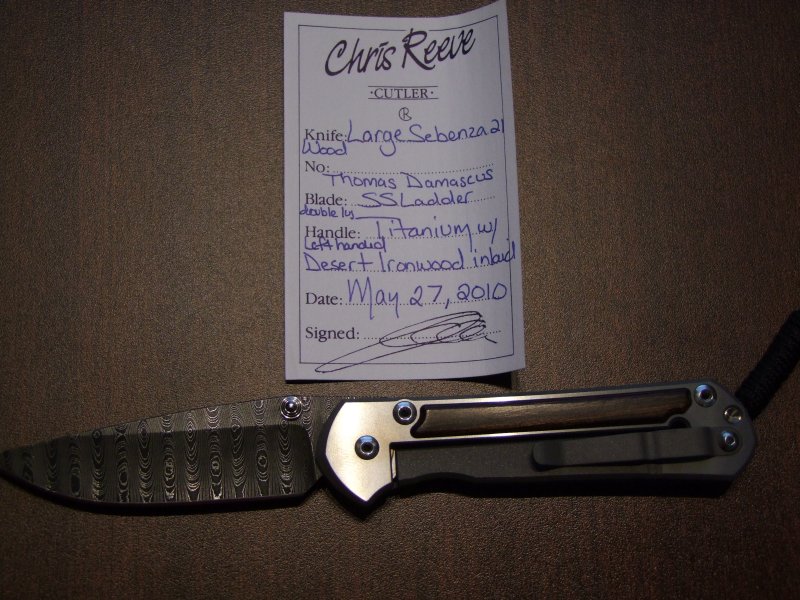 Chris Reeve
·CUTLER·
R
Knife: Large Sebenza 21
Wood
No:
Thomas Damascus
Blade: SS Ladder
double lugs
Handle: Titanium w/
Left handed
Desert Ironwood inlaid
Date: May 27, 2010
Signed: